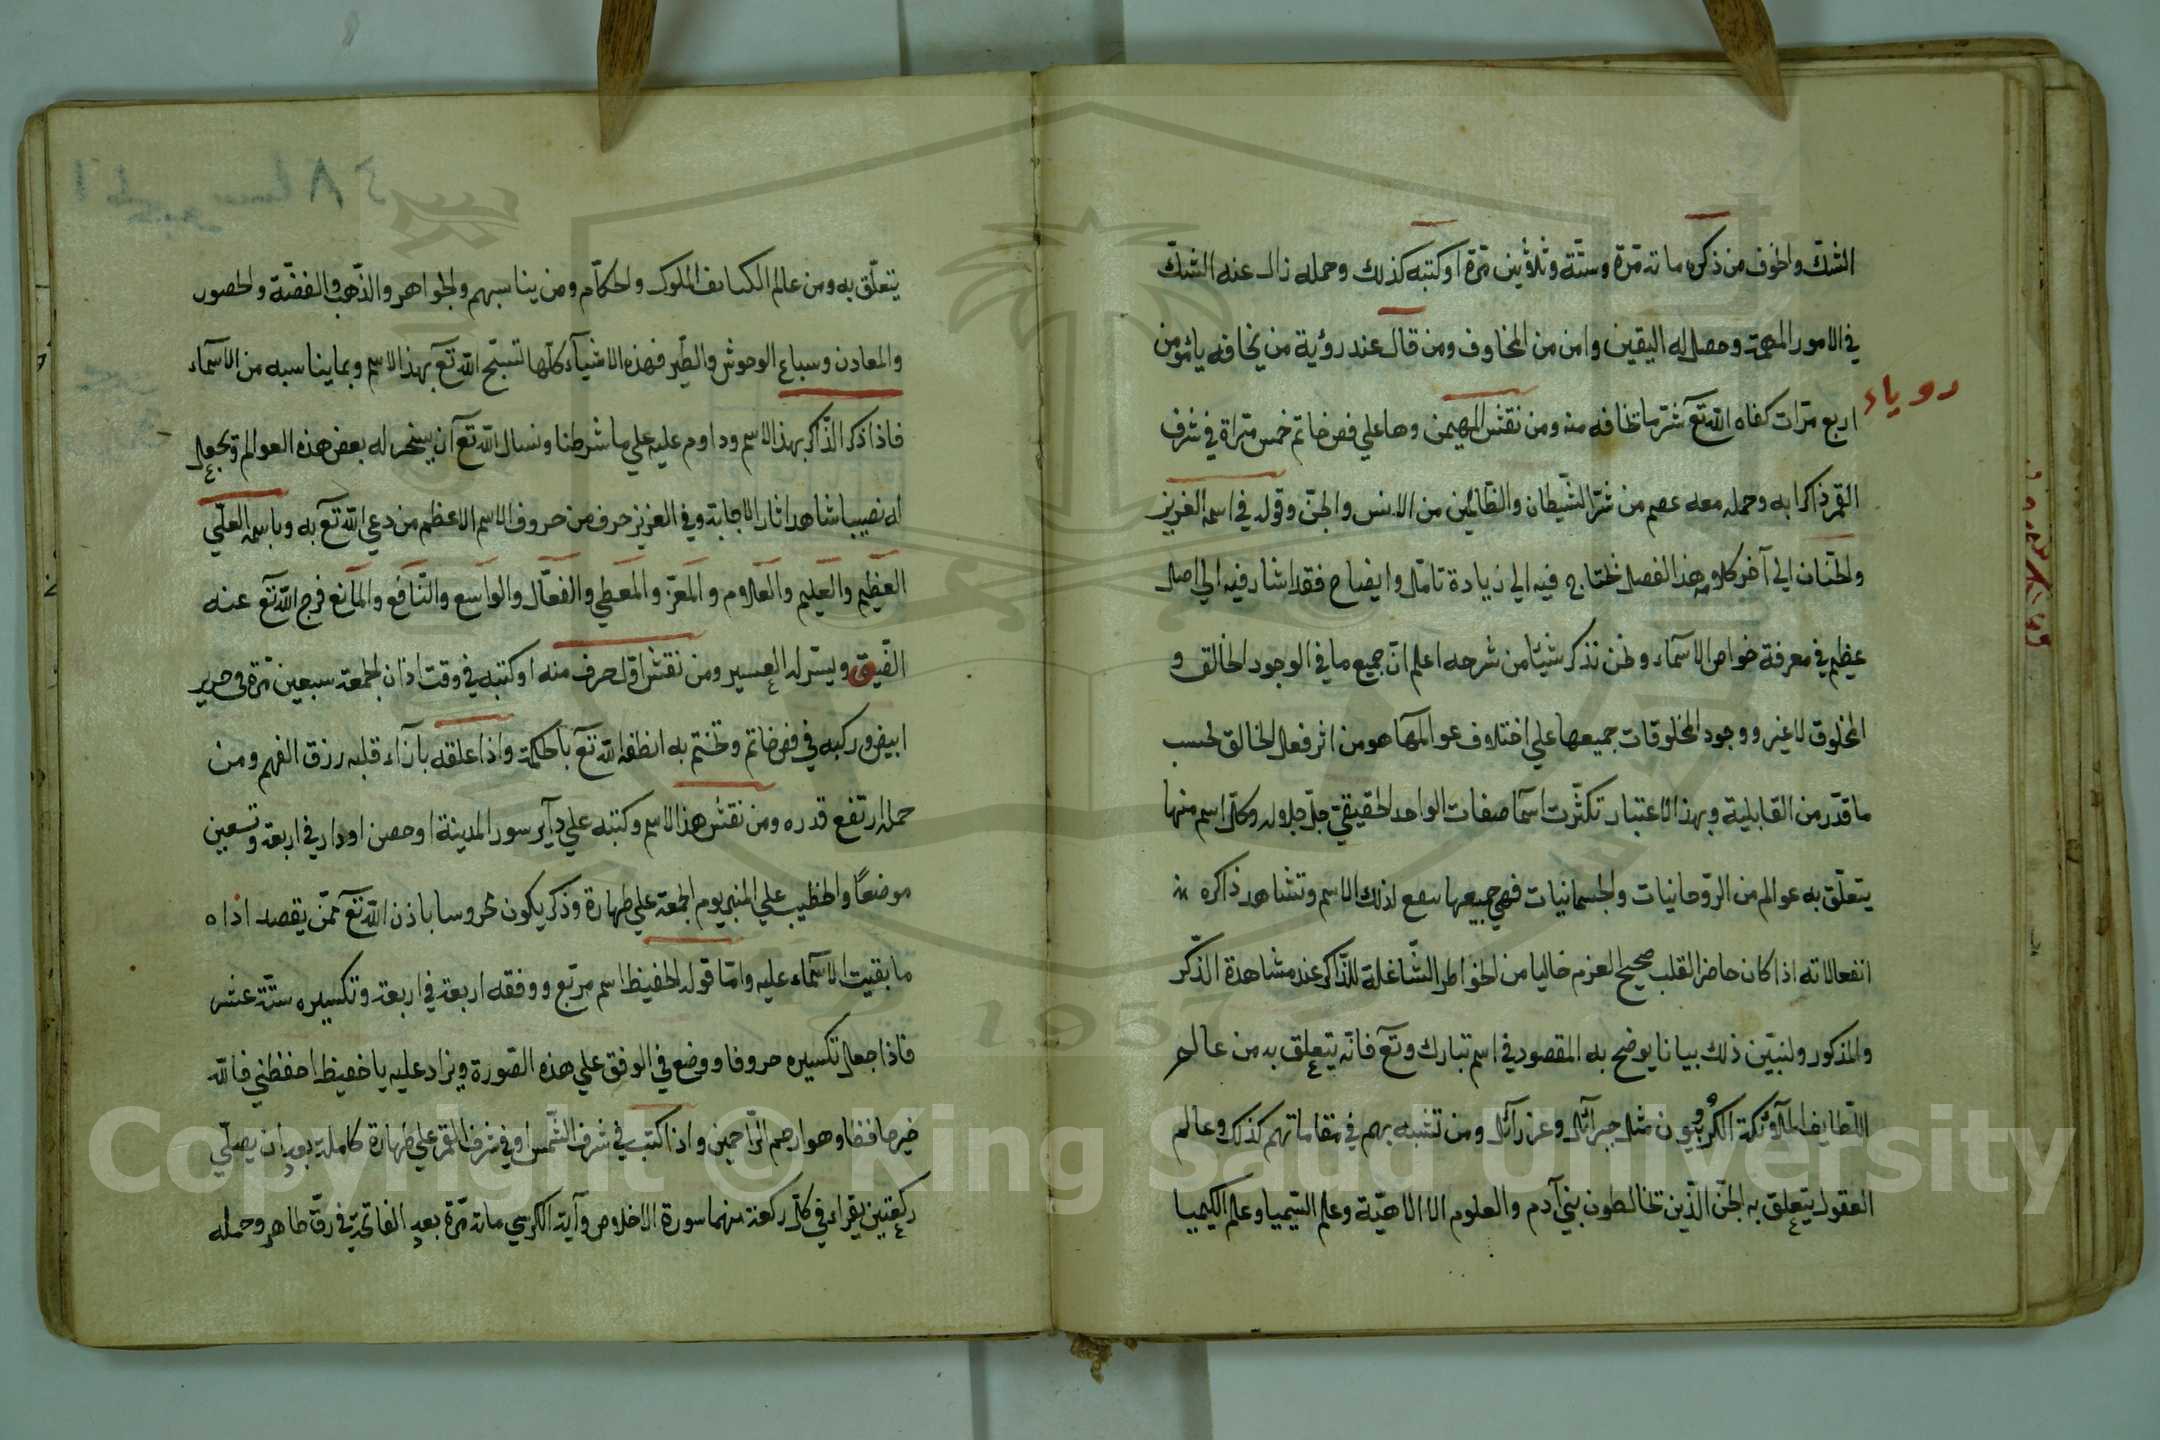 الشك والخوف من ذكره مائة مرة وستة وثلاثين مرة او كتبه كذلك وحمله زال عنه الشك
في الامور المهمة وحصل له اليقين وامن من المخاوف ومن قال عند رؤية من يخافه يا مؤمن
روياء
اربع مرات كفاه الله تع شر ما تخافه منه ومن نقش المهيمن وها علي فص خاتم خمس مراة في شرف
القمر ذاكرا به وحمله معه عصم من شر الشيطان والظالمين من الانس والجن وقوله في اسمه العزيز
والحنان الي آخر كلامه هذا الفصل نحتاج فيه الي زيادة تامل وايضاح فقد اشار فيه الي اصل
عظيم في معرفة خواص الاسماء ونحن نذكر شيئا من شرحه اعلم ان جميع ما في الوجود الخالق و
المخلوق لا غير ووجود المخلوقات جميعها علي اختلاف عوالمها هو من اثر فعل الخالق بحسب
ما قدر من القابلية وبهذا الاعتبار تكثرت اسما صفات الواحد الحقيقي جل جلاله وكل اسم منها
يتعلق به عوالم من الروحانيات والجسمانيات فهي جميعها لذلك الاسم وتشاهد ذاكره
انفعالاته اذا كان حاضر القلب صحيح العزم خاليا من الخواطر الشاغلة للذاكر عند مشاهدة الذكر
والمذكور ولنبين ذلك بيانا يوضح به المقصود في اسم تبارك وتع فانه يتعلق به من عالم
اللطايف الملآئكة الكروبيون مثل جبرآئل وعزرآئل ومن تشبه بهم في مقاماتهم كذلك وعالم
العقول يتعلق به الجن الذين تخالطون بني آدم والعلوم الالاهية وعلم السيميا وعلم الكيميا
يتعلق به ومن عالم الكثائف الملوك والحكام ومن يناسبهم والجواهر والذهب والفضة والحصور
والمعادن وسباع الوحوش والطير فهذه الاشيآء كلها تسبح الله تع بهذا الاسم وبما يناسبه من الاسماء
فاذا ذكر الذاكر بهذا الاسم وداوم عليه علي ما شرطنا ونسال الله تع ان يسخر له بعض هذه العوالم وتجعل
له نصيبا شاهد اثار الاجابة وفي العزيز حرف من حروف الاسم الاعظم من دعي الله تع به وباسمه العلي
العظيم والعليم والعلام والمعز والمعطي والفعال والواسع والنافع والمانع فرج الله تع عنه
الضيق ويسر له العسير ومن نقش اول حرف منه او كتبه في وقت اذان الجمعة سبعين مرة في حرير
ابيض وركبه في فص خاتم وتختم به انطقه الله تع بالحكمة واذا علقه بازآء قلبه رزق الفهم ومن
حمله ارتفع قدره ومن نقش هذا الاسم وكتبه علي دآير سور المدينة او حصن او دار في اربعة وتسعين
موضعا والخطيب علي المنبر يوم الجمعة علي طهارة وذكر يكون محروسا باذن الله تع ممن يقصد اذاه
ما بقيت الاسماء عليه واما قوله الحفيظ اسم مربع ووفقه اربعة في اربعة وتكسيره ستة عشر
فاذا جعل تكسيره حروفا ووضع في الوفق علي هذه الصورة ويزاد عليه يا حفيظ احفظني فالله
خير حافظا وهو ارحم الراحمين واذا كتب في شرف الشمس او في شرف القمر علي طهارة كاملة بعد ان يصلي
ركعتين يقراء في كل ركعة منهما سورة الاخلاص وآية الكرسي مائة مرة بعد الفاتحة في رق طاهر وحمله